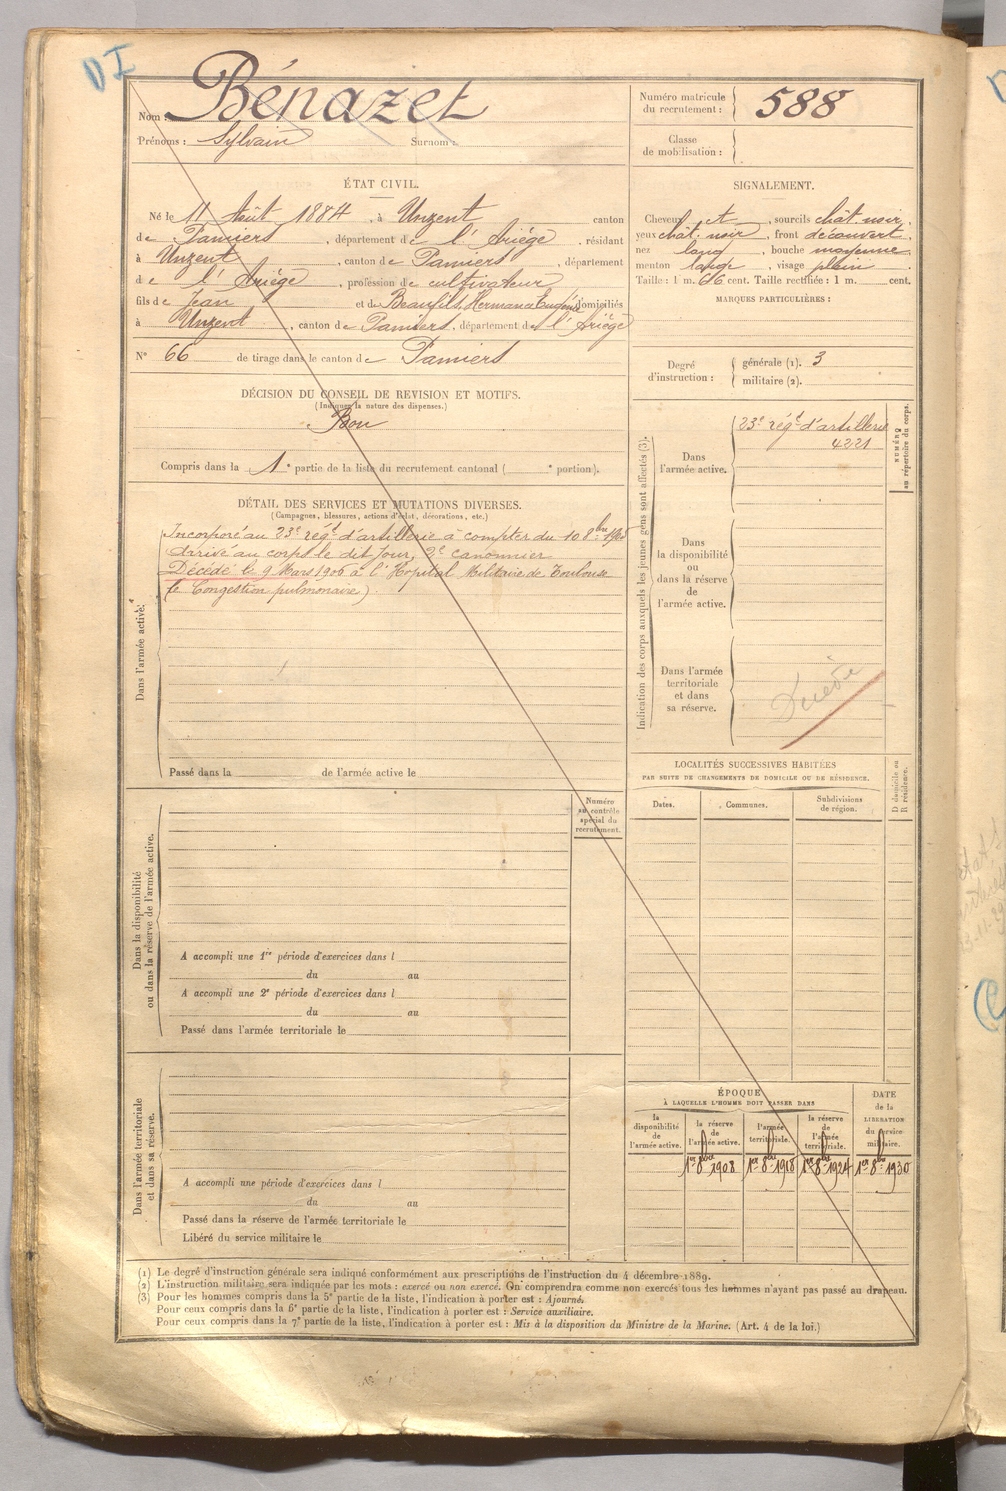 DI
Nom : Bénazet
Prénoms : Sylvain Surnom :
Numéro matricule du recrutement : 588
Classe de mobilisation :
ÉTAT CIVIL.
Né le 11 Août 1884, à Unzent canton
de Pamiers, département de l'Ariége, résidant
à Unzent, canton de Pamiers, département
de l'Ariége, profession de cultivateur
fils de Jean et de Beaufils, Hermance Eugénie domiciliés
à Unzent, canton de Pamiers, département de l'Ariége
N° 66 de tirage dans le canton de Pamiers
SIGNALEMENT.
Cheveux et, sourcils chât. noir,
yeux chât. noir, front découvert,
nez long, bouche moyenne,
menton large, visage plein
Taille : 1 m. 66 cent. Taille rectifiée : 1 m. cent.
MARQUES PARTICULIÈRES :
Degré d'instruction :
générale (1). 3
militaire (2).
DÉCISION DU CONSEIL DE REVISION ET MOTIFS.
(Indiquer la nature des dispenses.)
Bon
Compris dans la 1e partie de la liste du recrutement cantonal ( e portion).
DÉTAIL DES SERVICES ET MUTATIONS DIVERSES.
(Campagnes, blessures, actions d'éclat, décorations, etc.)
Dans l'armée active.
Incorporé au 23e régt d'artillerie à compter du 10 8bre 1905
arrivé au corps le dit jour, 2e canonnier
Décédé le 9 Mars 1906 à l'Hopital Militaire de Toulouse
(e Congestion pulmonaire).
Passé dans la de l'armée active le
Indication des corps auxquels les jeunes gens sont affectés (3).
NUMÉRO au répertoire du corps.
Dans l'armée active.
23e régt d'artillerie
4221
Dans la disponibilité ou dans la réserve de l'armée active.
Dans l'armée territoriale et dans sa réserve.
LOCALITÉS SUCCESSIVES HABITÉES
PAR SUITE DE CHANGEMENTS DE DOMICILE OU DE RÉSIDENCE.
Dates. Communes. Subdivisions de région. D domicile ou R résidence.
Dans la disponibilité ou dans la réserve de l'armée active.
Numéro au contrôle spécial du recrutement.
A accompli une 1re période d'exercices dans l
du au
A accompli une 2e période d'exercices dans l
du au
Passé dans l'armée territoriale le
Dans l'armée territoriale et dans sa réserve.
A accompli une période d'exercices dans l
du au
Passé dans la réserve de l'armée territoriale le
Libéré du service militaire le
ÉPOQUE
À LAQUELLE L'HOMME DOIT PASSER DANS
la disponibilité de l'armée active.
la réserve de l'armée active.
l'armée territoriale.
la réserve de l'armée territoriale.
DATE de la LIBÉRATION du service militaire.
1er 8bre 1908 1er 8bre 1918 1er 8bre 1924 1er 8bre 1930
(1) Le degré d'instruction générale sera indiqué conformément aux prescriptions de l'instruction du 4 décembre 1889.
(2) L'instruction militaire sera indiquée par les mots : exercé ou non exercé. On comprendra comme non exercés tous les hommes n'ayant pas passé au drapeau.
(3) Pour les hommes compris dans la 5e partie de la liste, l'indication à porter est : Ajourné.
Pour ceux compris dans la 6e partie de la liste, l'indication à porter est : Service auxiliaire.
Pour ceux compris dans la 7e partie de la liste, l'indication à porter est : Mis à la disposition du Ministre de la Marine. (Art. 4 de la loi.)